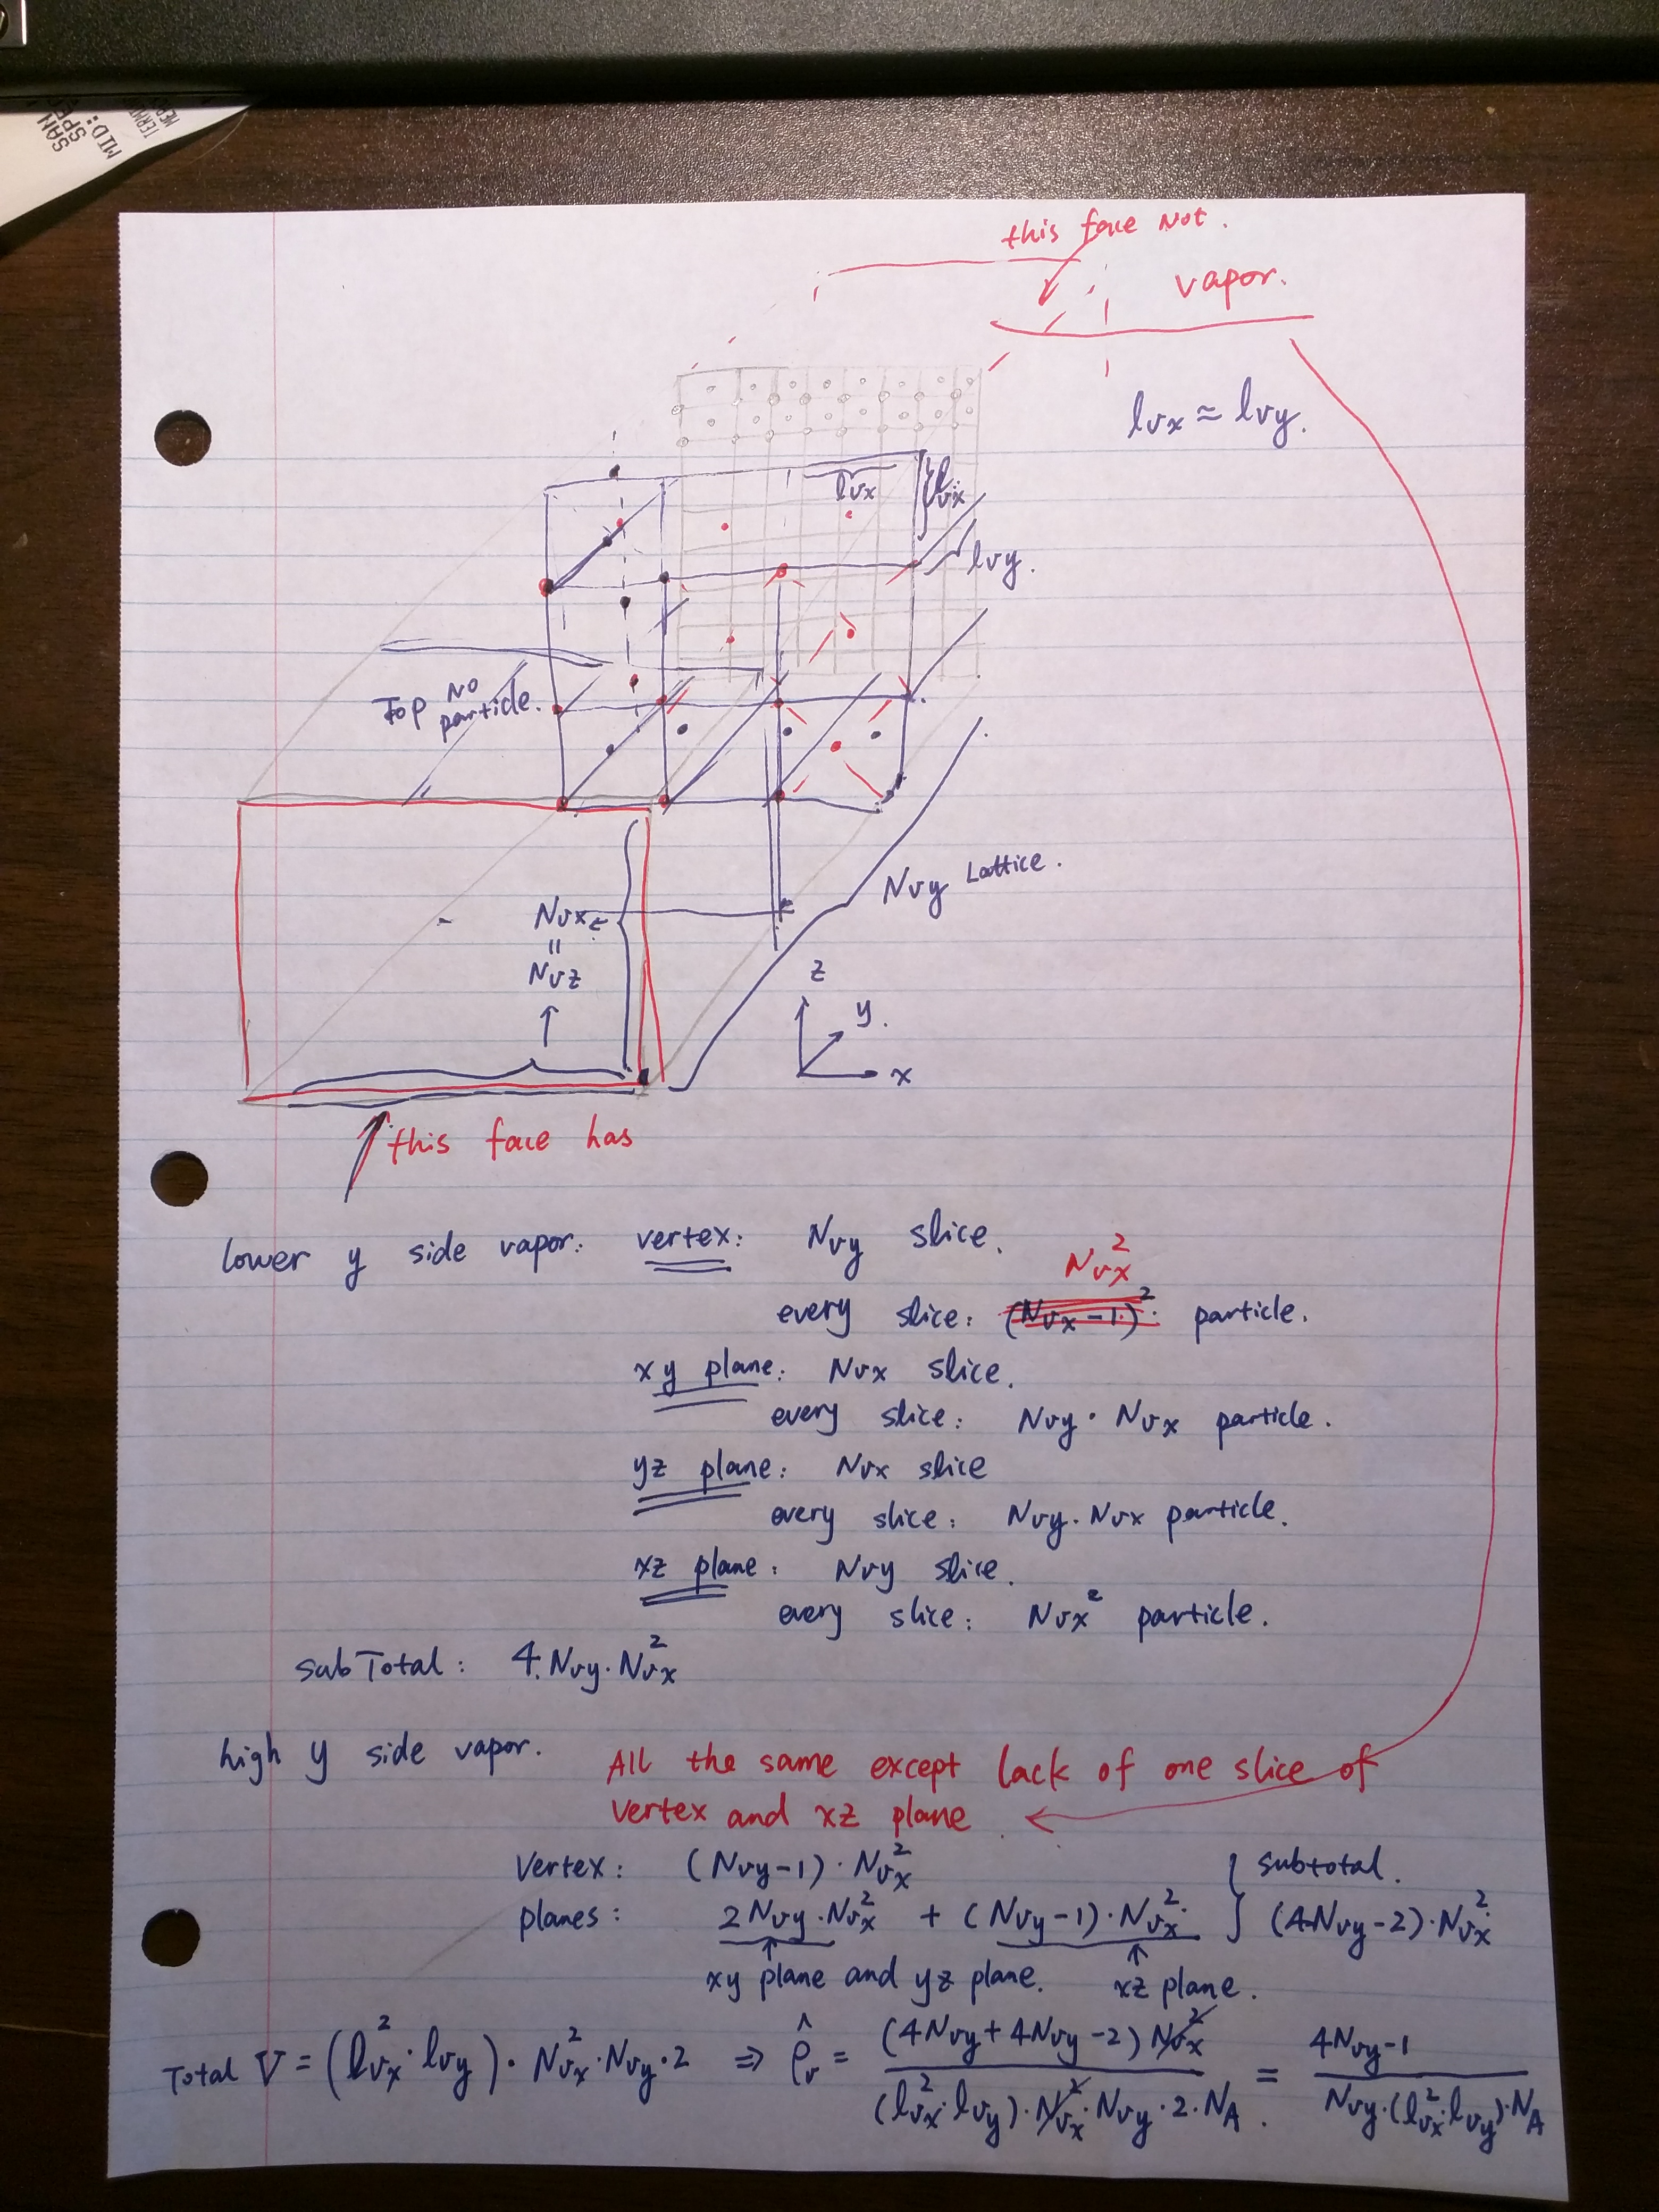 SAN
SPE
MID:
TERMI
MERC
this face Not.
vapor.
lvx ≈ lvy.
lvx
lvx
lvy.
Top No
particle.
Nvy Lattice.
Nvx
=
Nvz
z
y.
x
this face has
lower y side vapor: vertex: Nvy slice.
Nvx²
every slice: (Nvx-1)². particle.
xy plane: Nvx slice.
every slice: Nvy · Nvx particle.
yz plane: Nvx slice
every slice: Nvy · Nvx particle.
xz plane: Nvy slice.
every slice: Nvx² particle.
subTotal: 4·Nvy·Nvx²
high y side vapor. All the same except lack of one slice of
vertex and xz plane
Vertex: (Nvy-1) · Nvx² } subtotal.
planes: 2Nvy·Nvx² + (Nvy-1)·Nvx² (4Nvy-2)·Nvx²
↑ ↑
xy plane and yz plane. xz plane.
Total V = (lvx²·lvy)·Nvx²·Nvy·2 ⇒ ρ̂v = (4Nvy+4Nvy-2)Nvx² / (lvx²·lvy)·Nvx²·Nvy·2·NA. = 4Nvy-1 / Nvy·(lvx²·lvy)·NA